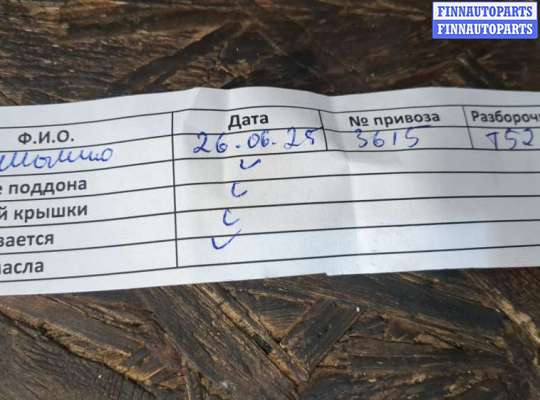 FINNAUTOPARTS
FINNAUTOPARTS
Ф.И.О. Дата № привоза Разбороч
26.06.25 3615 T52
е поддона
й крышки
вается
масла